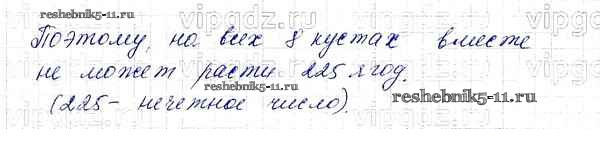 reshebnik5-11.ru
vipgdz.ru
Поэтому, на всех 8 кустах вместе
не может расти 225 ягод.
reshebnik5-11.ru
(225 - нечетное число).
reshebnik5-11.ru